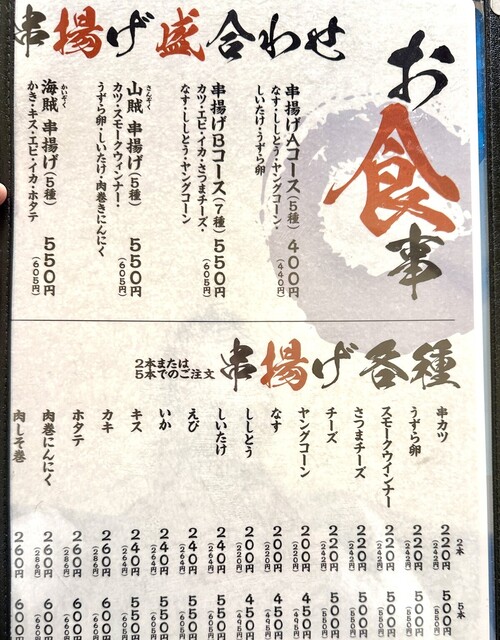 お食事
串揚げ盛合わせ
串揚げAコース(5種) 400円(440円)
なす・ししとう・ヤングコーン・
しいたけ・うずら卵
串揚げBコース(7種) 550円(605円)
カツ・エビ・イカ・さつまチーズ・
なす・ししとう・ヤングコーン
山賊 串揚げ(5種) 550円(605円)
さんぞく
カツ・スモークウィンナー・
うずら卵・しいたけ・肉巻きにんにく
海賊 串揚げ(5種) 550円(605円)
かいぞく
かき・キス・エビ・イカ・ホタテ
串揚げ各種
2本または
5本でのご注文
2本 5本
串カツ 220円(242円) 500円(550円)
うずら卵 220円(242円) 500円(550円)
スモークウインナー 220円(242円) 500円(550円)
さつまチーズ 220円(242円) 500円(550円)
チーズ 220円(242円) 500円(550円)
ヤングコーン 200円(220円) 450円(495円)
なす 200円(220円) 450円(495円)
ししとう 200円(220円) 450円(495円)
しいたけ 240円(264円) 550円(605円)
えび 240円(264円) 550円(605円)
いか 240円(264円) 550円(605円)
キス 240円(264円) 550円(605円)
カキ 260円(286円) 600円(660円)
ホタテ 260円(286円) 600円(660円)
肉巻にんにく 260円(286円) 600円(660円)
肉しそ巻 260円(286円) 600円(660円)